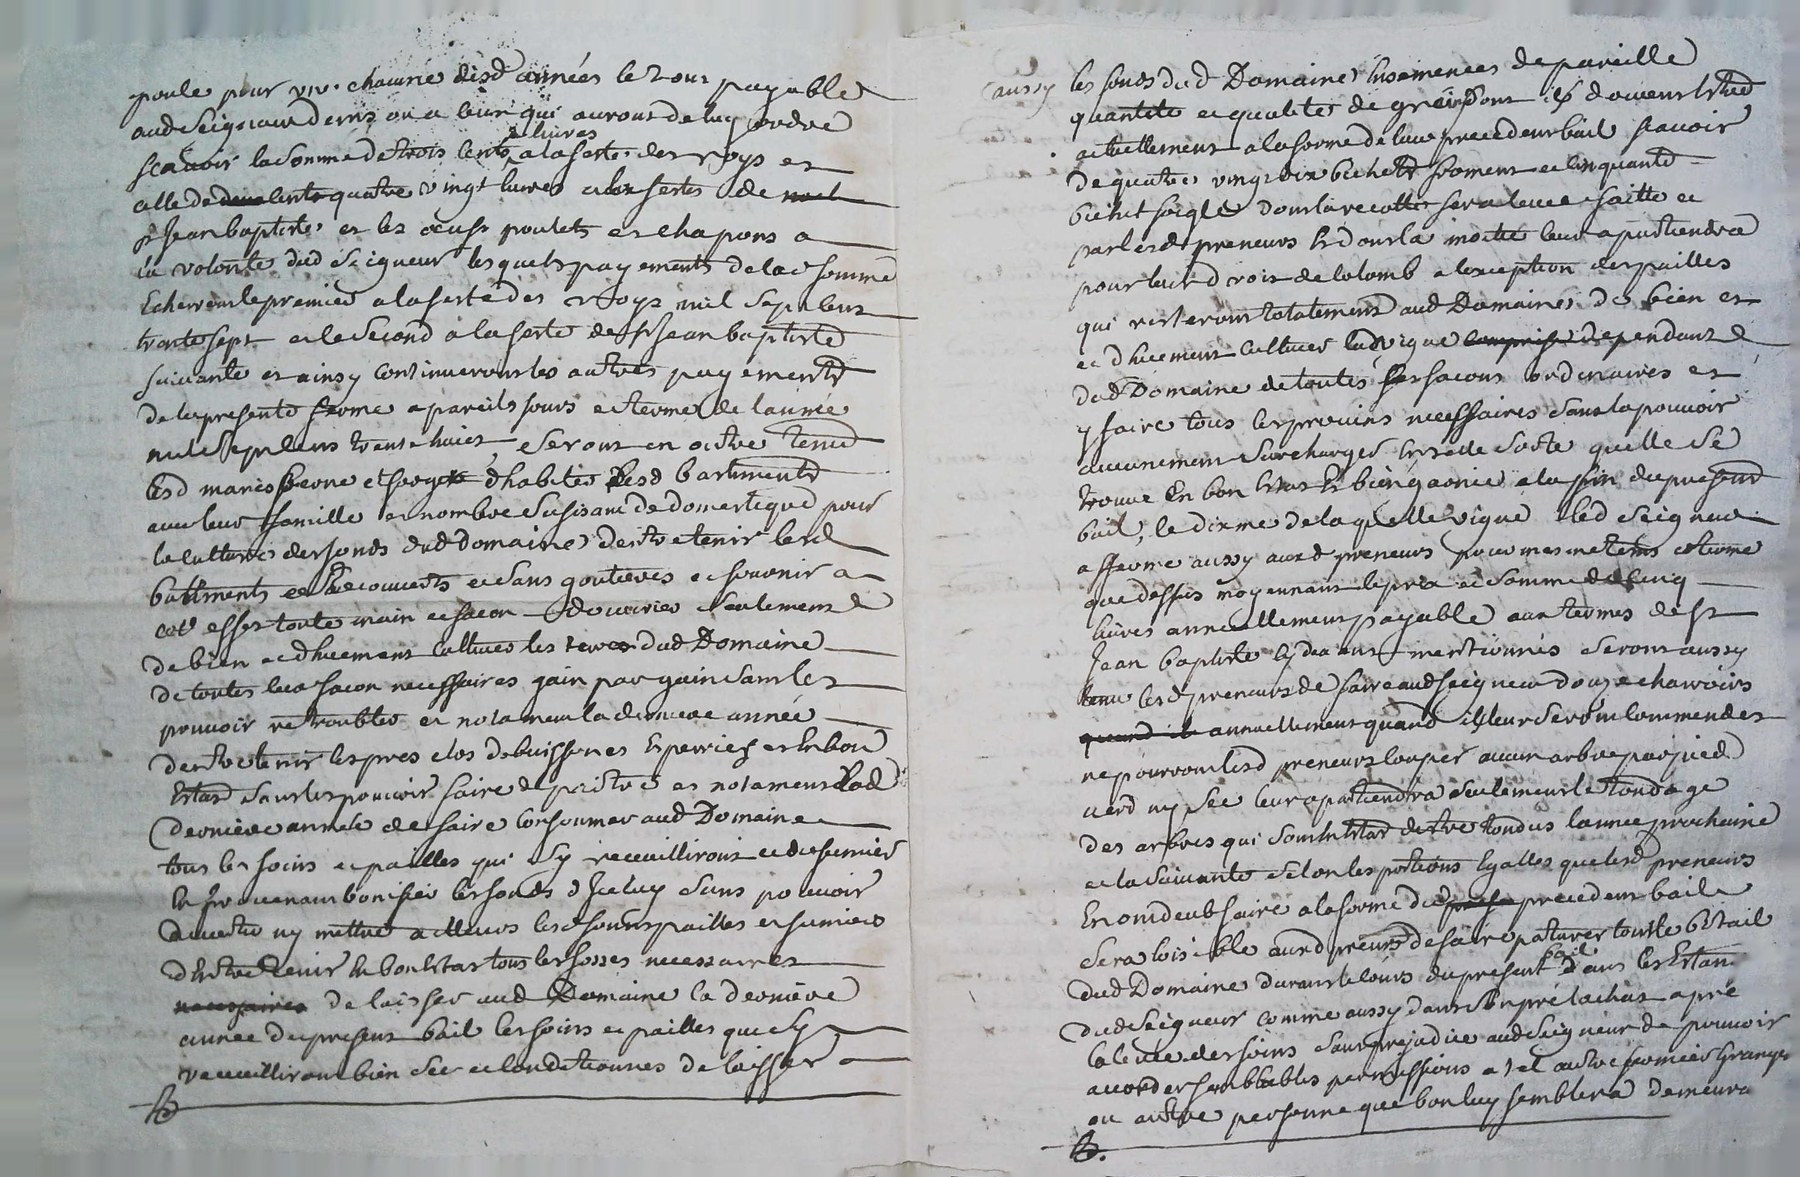 poule pour une chaune desd années le tour payable
aud Seigneur dernis ou a ceux qui auront de luy ordre
et livres
scavoir la somme de trois cents a la feste des roys et
celle de deux cents quatre vingt livres a la feste de noel
st Jean baptiste et les oeufs poulets et chapons a
la volonté dud Seigneur lesquels payements de lad somme
Echerront le premier a la feste des roys mil sept cent
trente sept et le second a la feste de st Jean baptiste
suivante et ainsy continueront les autres payements
de la presente ferme a pareils jours et terme de lannée
mil sept cens trente huict, seront en outre tenus
lesd mariés d'habiter lesd battiments
avec leur famille et nombre sufisant de domestique pour
la culture des fonds dud domaine d'entretenir lesd
battiments recouverts et sans goutieres et fournir a
cet effet toute main et facon d'ouvrier seulement
de bien et dhuement cultiver les terres dud Domaine
de toutes leur facon necessaires gain par gain sans les
pouvoir retroubler et notament la derniere année
d'entretenir les pres clos debuissonnes Esperriés et en bon
Estat sans les pouvoir faire depaistre et notament lad
derniere année de faire consommer aud Domaine
tous les foins et pailles qui sy receuilliront et du fumier
En provenant bonifier les fonds d'Iceluy sans pouvoir
divertir ny mettre ailleurs lesd foins pailles et fumiers
d'Entretenir En bon Estat tous les fosses necessaires
necessaires de laisser aud Domaine la derniere
année du present bail les foins et pailles que sy
receuilliront bien sec et conditionnes de laisser
aussy les fonds dud Domaine Ensemences de pareille
quantite et qualites de grein dont ils doivent Estre
actuellement a la forme de leur precedent bail scavoir
de quatre vingt dix bichets froment et cinquante
bichet soigle dont la recolte sera levée faitte et
par lesd preneurs Et dont la moitié leur apartiendra
pour leur droit de colomb a lexception des pailles
qui resteront totalement aud Domaine de bien et
et dhuement cultiver lad vigne comprise dependant
dud Domaine de toutes ses facons ordinaires et
y faire tous les provins necessaires sans la pouvoir
aucunement surcharger Ensorte quelle se
trouve En bon Estat Et bien garnie a la fin du present
bail, le dixme de laquelle vigne led Seigneur
afferme aussy auxd preneurs pour mesme tems et terme
que dessus moyennant le prix et somme de cinq
livres annuellement payable aux termes de st
Jean baptiste cy devant mentionnés seront aussy
tenu lesd preneurs de faire aud seigneur douze charrois
quand ils annuellement quand ils leur seront commendes
ne pourront lesd preneurs couper aucun arbre par pied
verd ny sec leur apartiendra seulement le tondage
des arbres qui sont En Estat destre tondus lannée prochaine
et la suivante selon les portions Egalles que lesd preneurs
En ont deub faire a la forme du precedent bail
sera loisible auxd preneurs de faire paturer tout le bétail
bail
dud Domaine durant le cours du present dans les Estan
dud Seigneur comme aussy dans son pré lachat apré
la levée des foins sans prejudice aud Seigneur de pouvoir
accorder semblables permissions a tel autre fermier Granger
ou autre personne que bon luy semblera demeura